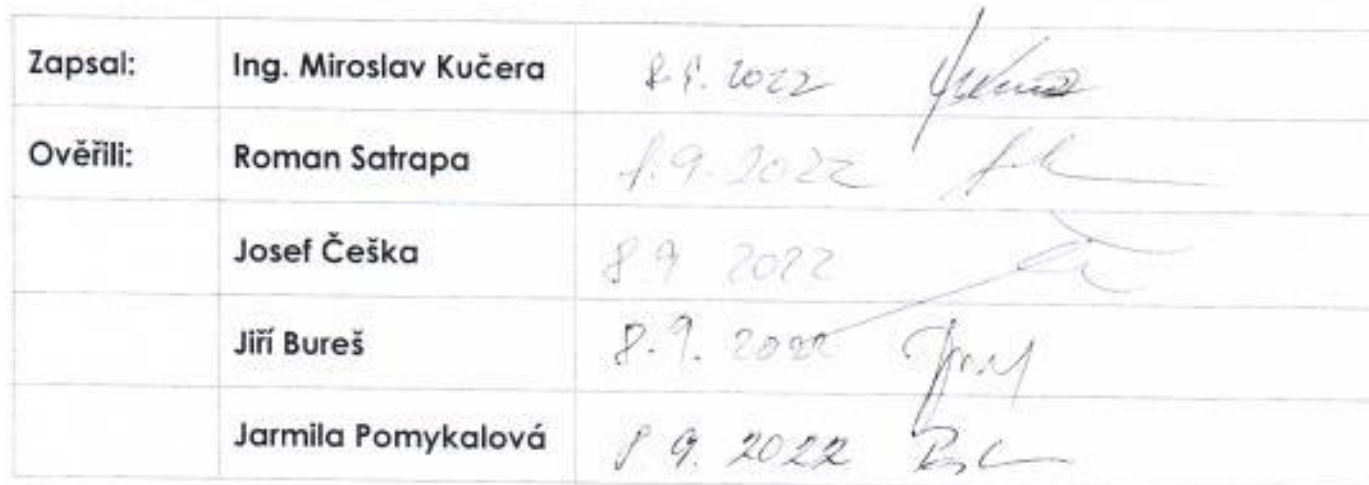 Zapsal: Ing. Miroslav Kučera 8.9. 2022
Ověřili: Roman Satrapa 8.9.2022
Josef Češka 8.9 2022
Jiří Bureš 8.9. 2022
Jarmila Pomykalová 8 9. 2022